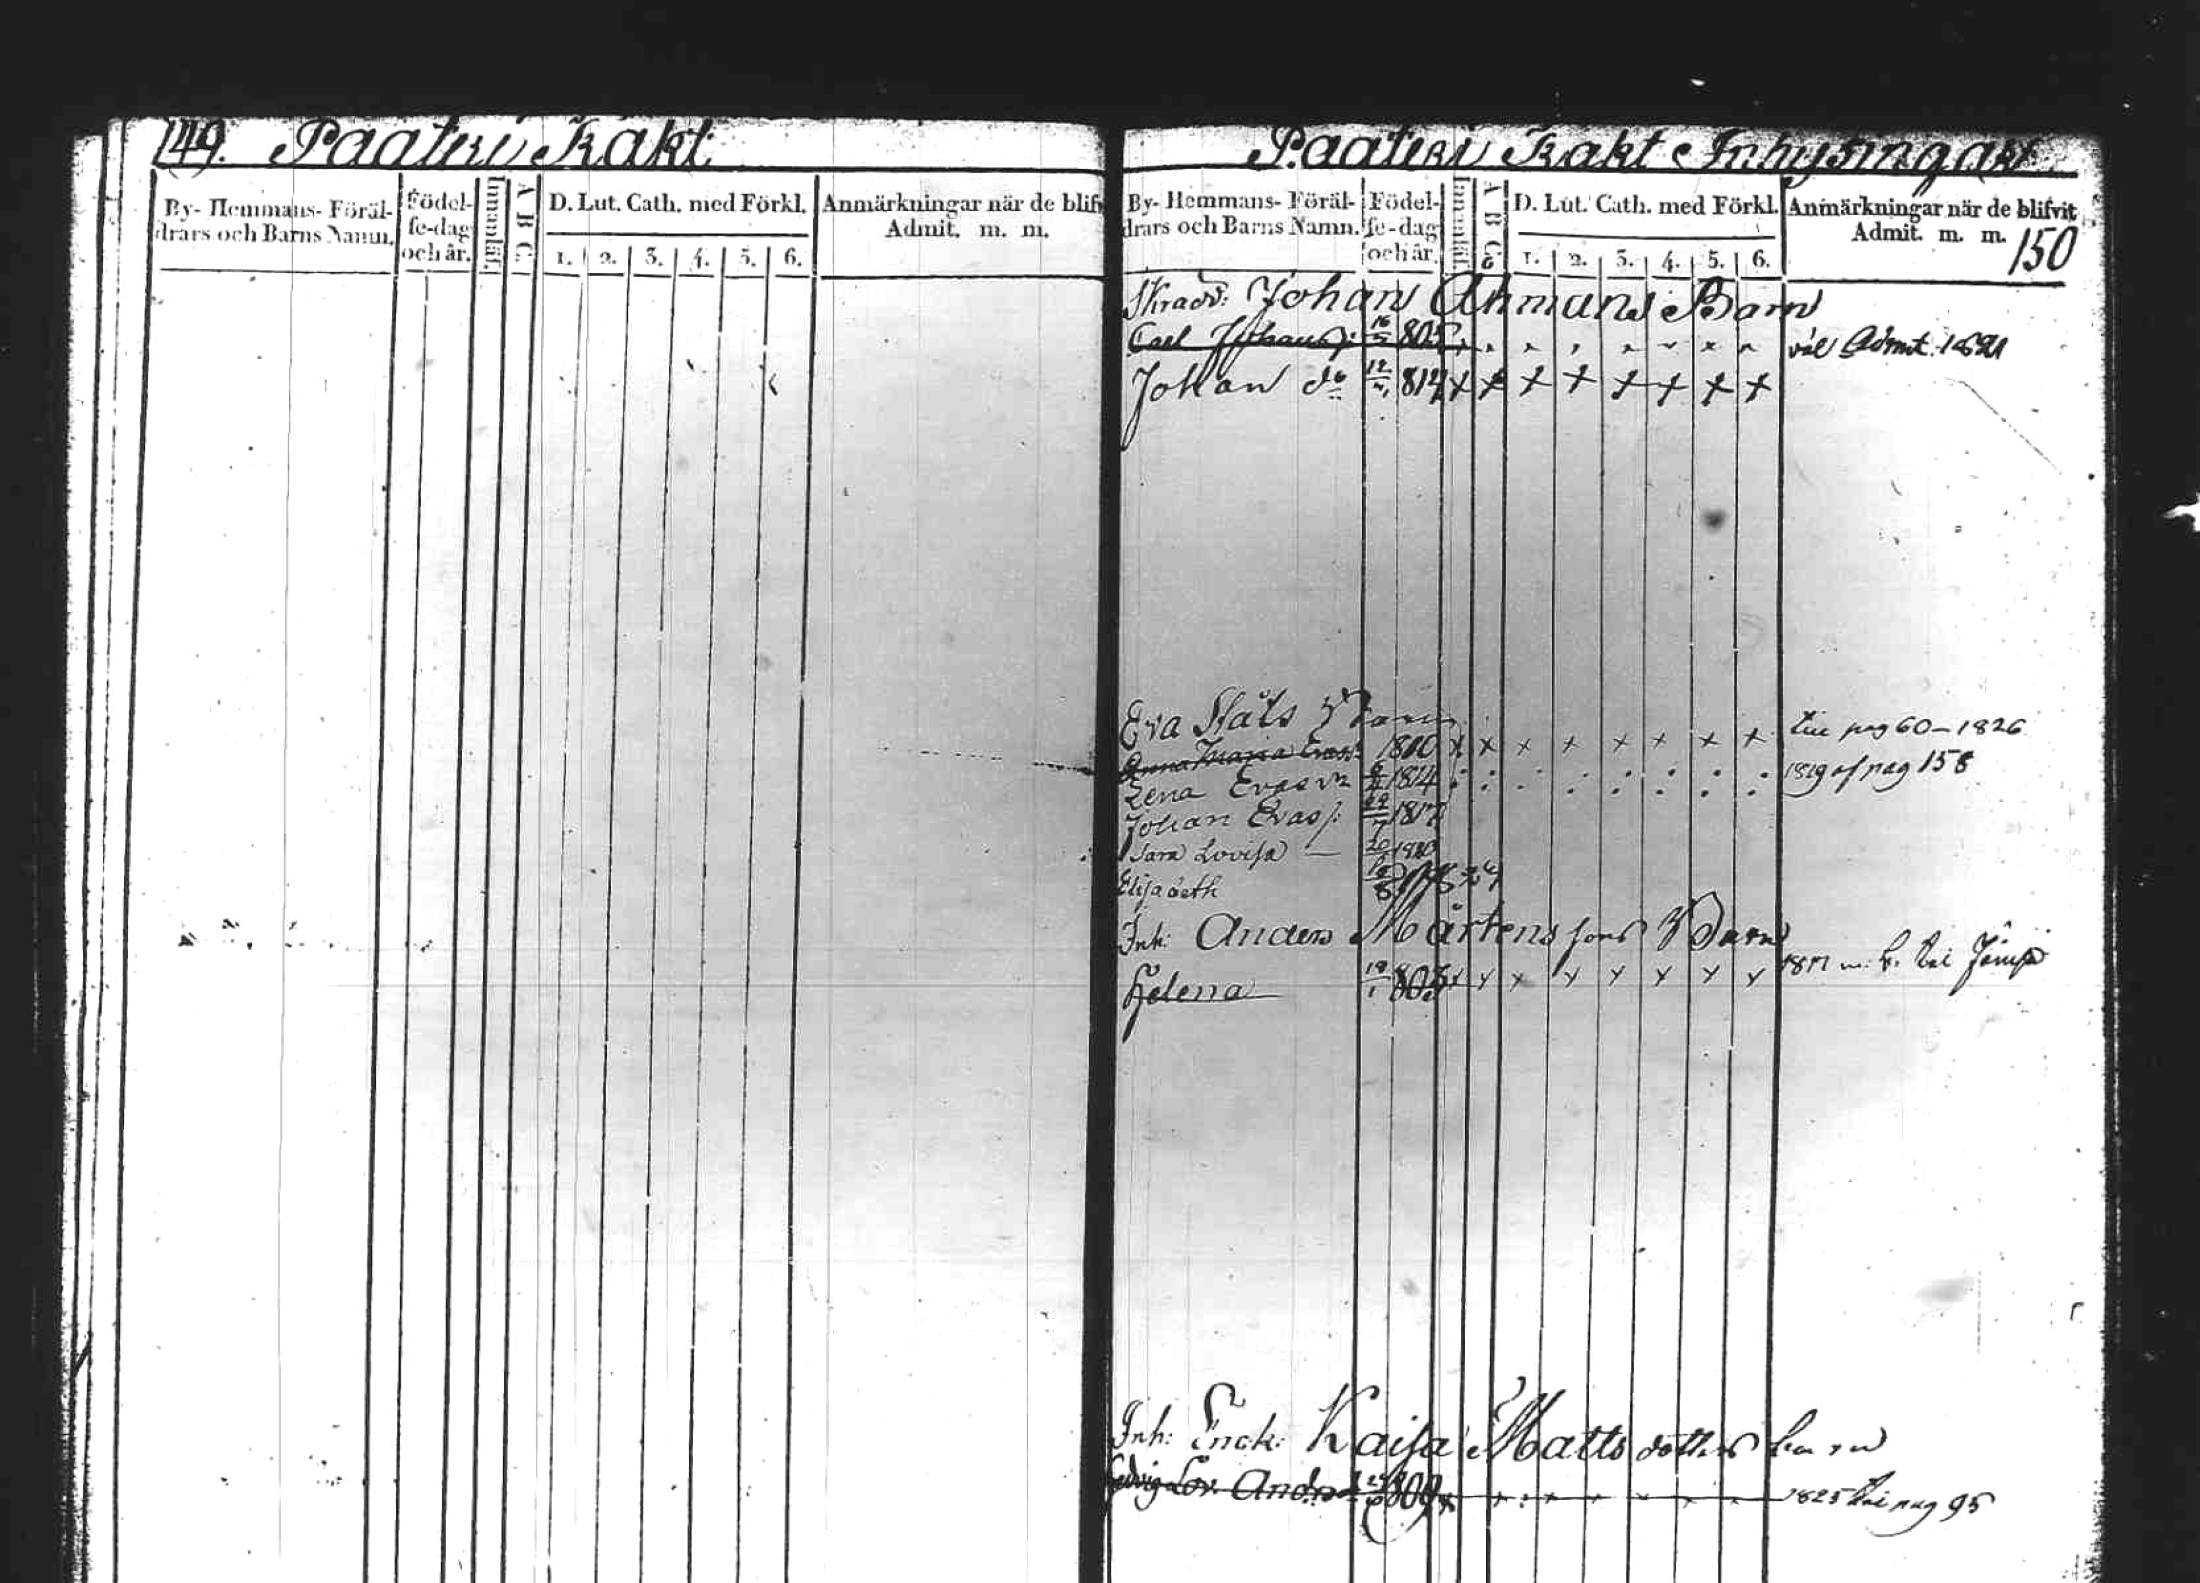 149. Paateri Rakt
By- Hemmans- Föräl-
drars och Barns Namn.
Födel-
se-dag
och år.
Innanläs.
A B C
D. Lut. Cath. med Förkl.
1. 2. 3. 4. 5. 6.
Anmärkningar när de blifv
Admit. m. m.
Paateri Rakt Inhysingar
By- Hemmans- Föräl-
drars och Barns Namn.
Födel-
se-dag
och år.
Innanläs.
A B C
D. Lut. Cath. med Förkl.
1. 2. 3. 4. 5. 6.
Anmärkningar när de blifvit
Admit. m. m.
150
Skradd: Johan Åhmans Barn
Carl Johans: 16 805 Admit.
Johan do 12 x x x x x x x x
Eva Mats Barn
Anna Maria Evas: 1800 x x x x x x x x till pag 60 - 1826
Lena Evas 1814 1819 af pag 158
Johan Evas: 1817
Sara Lovisa — 20
Elisabeth
Inh: Anders Mårtens sons Barn
Helena 18/1 803 x x x x x x x x
Inh: Enck: Kaisa Matts dotters barn
Hedvig Lov. Andrs 809 1825 till pag 95